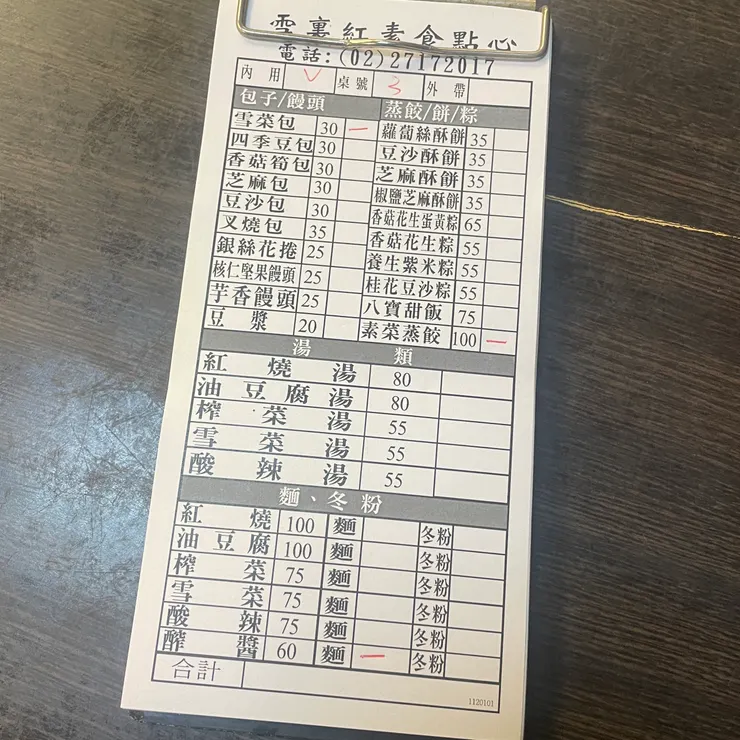 雪裏紅素食點心
電話:(02)27172017
內用 V 桌號 3 外帶
包子/饅頭 蒸餃/餅/粽
雪菜包 30 一 蘿蔔絲酥餅 35
四季豆包 30 豆沙酥餅 35
香菇筍包 30 芝麻酥餅 35
芝麻包 30 椒鹽芝麻酥餅 35
豆沙包 30 香菇花生蛋黃粽 65
叉燒包 35 香菇花生粽 55
銀絲花捲 25 養生紫米粽 55
核仁堅果饅頭 25 桂花豆沙粽 55
芋香饅頭 25 八寶甜飯 75
豆漿 20 素菜蒸餃 100 一
湯類
紅燒湯 80
油豆腐湯 80
榨菜湯 55
雪菜湯 55
酸辣湯 55
麵、冬粉
紅燒 100 麵 冬粉
油豆腐 100 麵 冬粉
榨菜 75 麵 冬粉
雪菜 75 麵 冬粉
酸辣 75 麵 冬粉
醡醬 60 麵 一 冬粉
合計
1120101